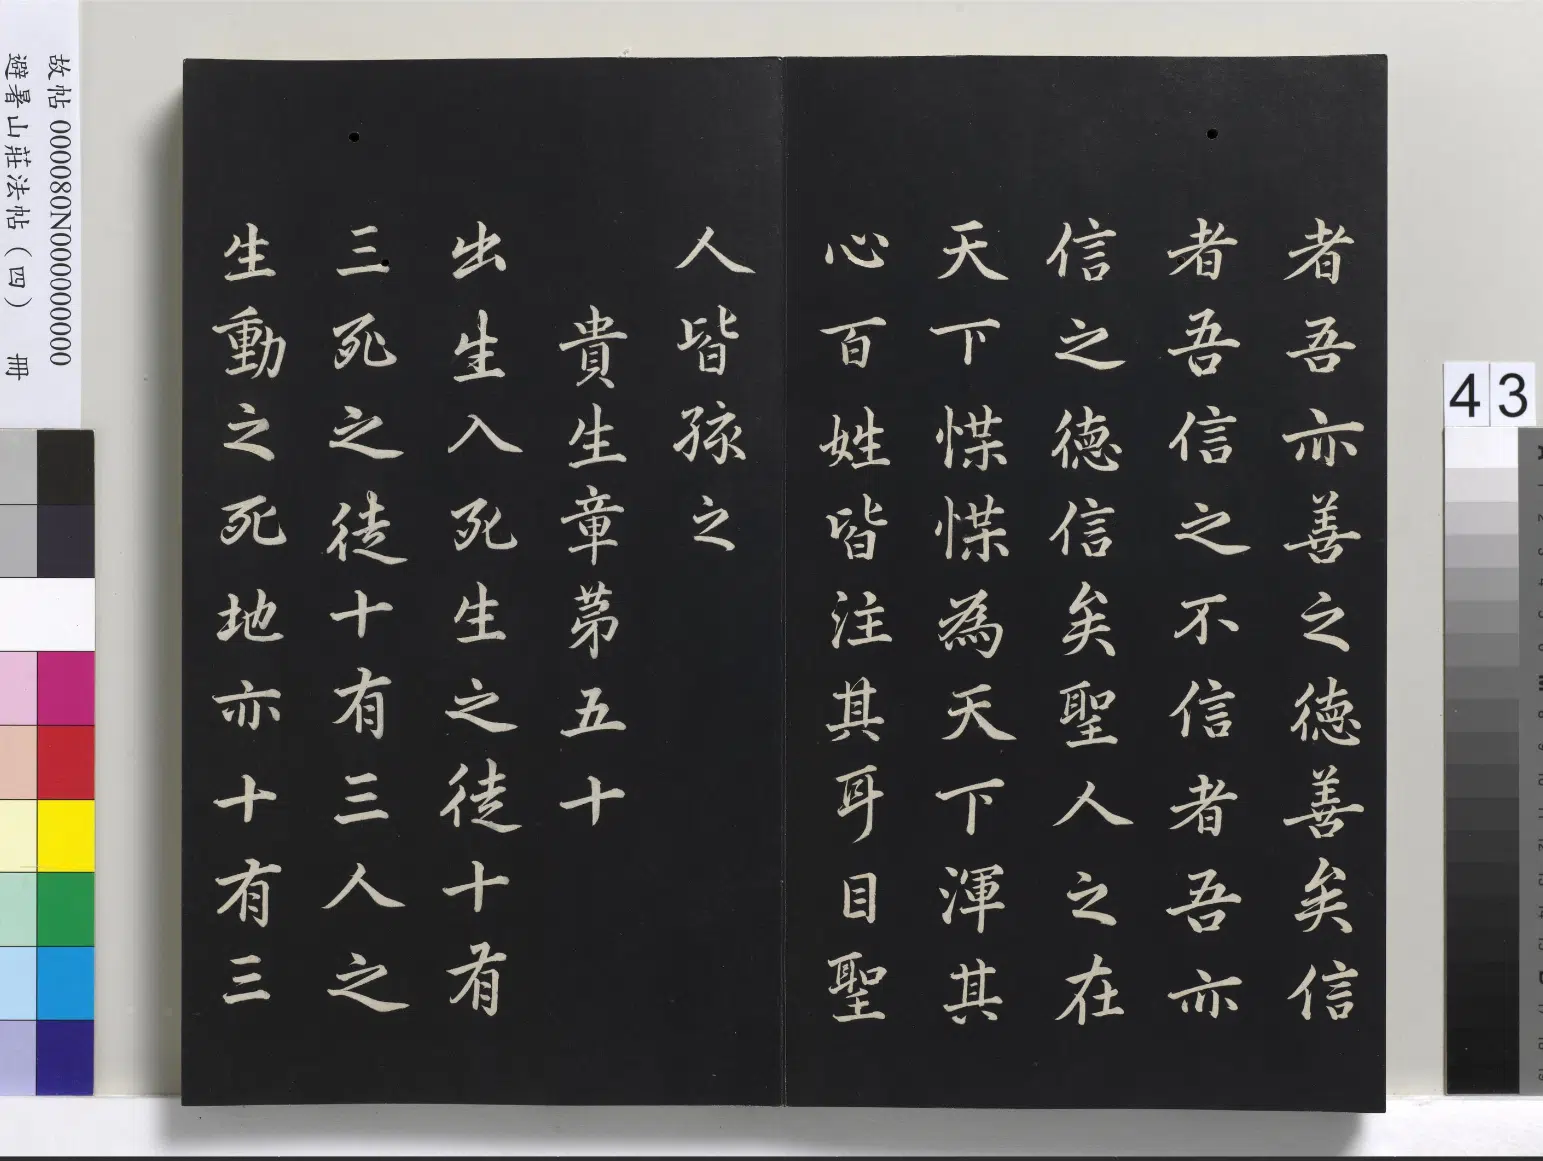 者吾亦善之德善矣信
者吾信之不信者吾亦
信之德信矣聖人之在
天下惵惵為天下渾其
心百姓皆注其耳目聖
人皆孩之
貴生章第五十
出生入死生之徒十有
三死之徒十有三人之
生動之死地亦十有三
故帖 000080N000000000
避暑山莊法帖（四） 冊
43